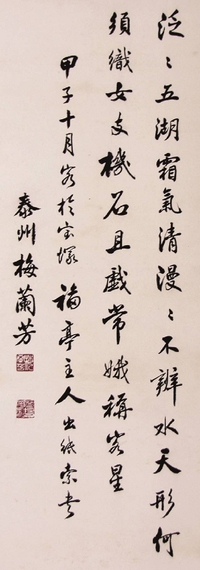 泛〻五湖霜氣清漫〻不辨水天形何
須織女支機石且戲常娥稱客星
甲子十月客於宝塚 福亭主人出紙索書
泰州梅蘭芳